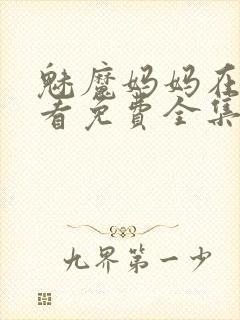 魅魔妈妈在
看免费全集
九界第一少